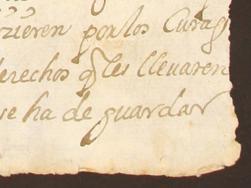 zieren por los Curas
derechos q les llevaren
se ha de guardar